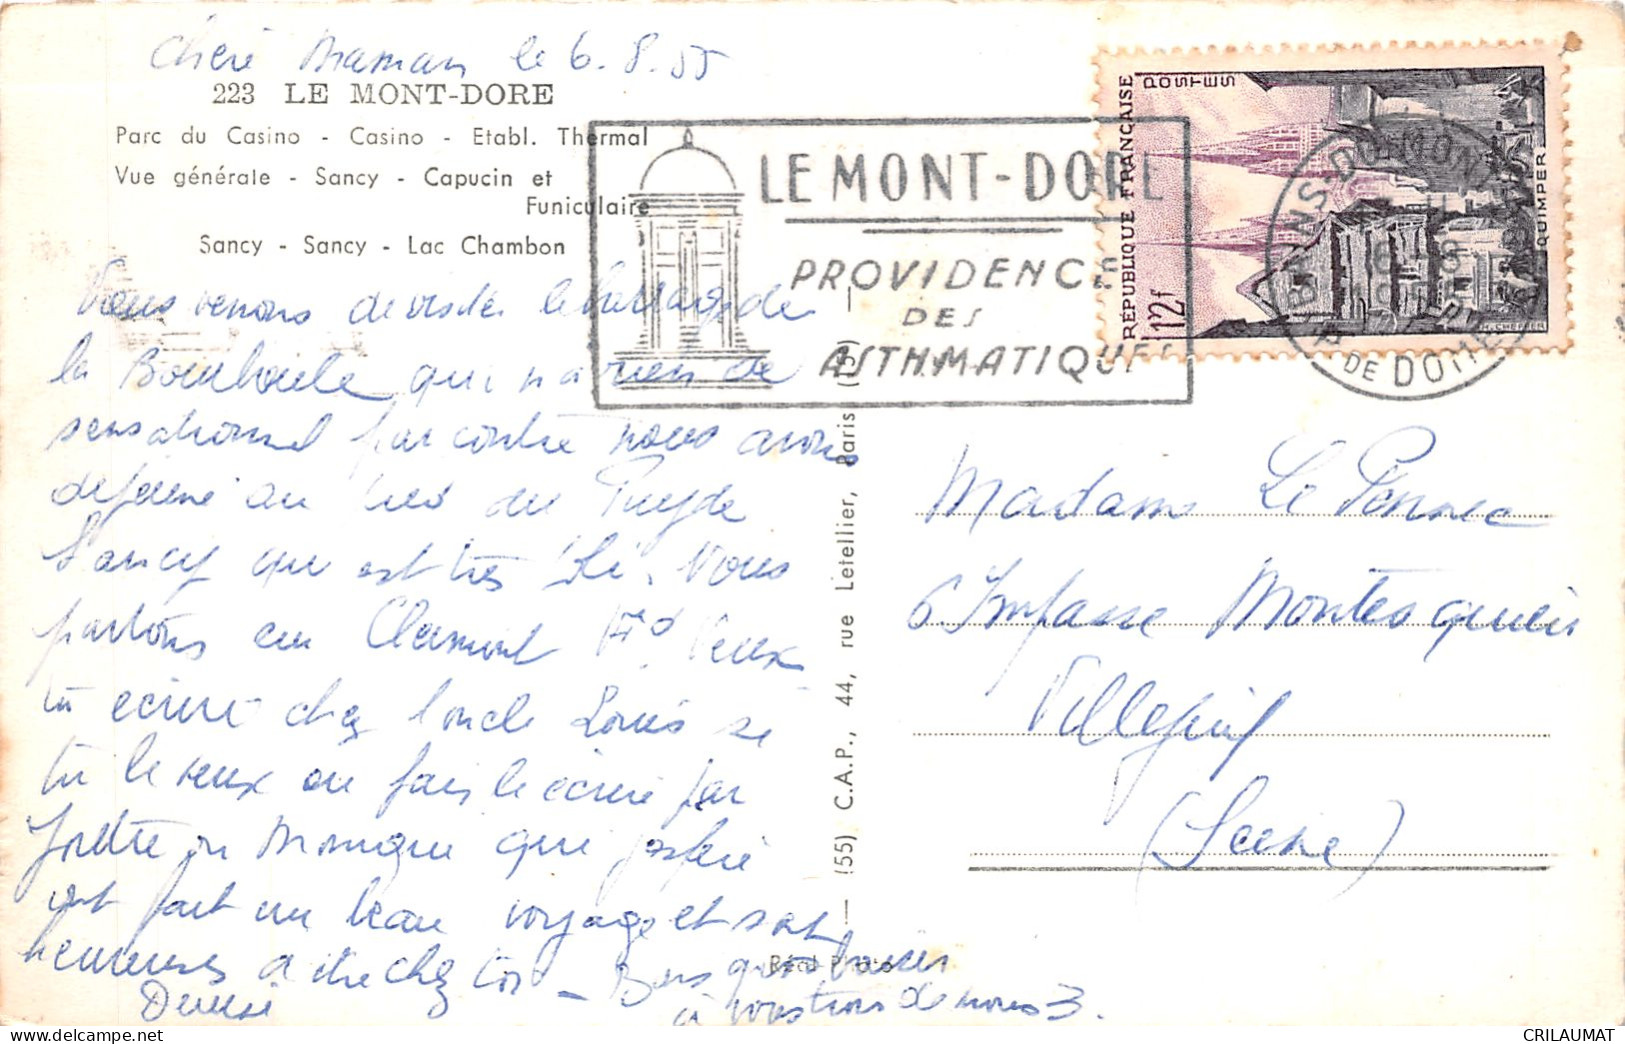 Chère Maman le 6.8.55
223 LE MONT-DORE
Parc du Casino - Casino - Etabl. Thermal
Vue générale - Sancy - Capucin et
Funiculaire
Sancy - Sancy - Lac Chambon
Nous venons de visiter le barrage de
la Bourboule qui n'a rien de
sensationnel par contre nous avons
déjeuné au pied du Puy de
Sancy qui est très . Nous
partons sur Clermont Fd. Veux
tu écrire chez l'oncle Louis si
tu le veux ou fais le écrire par
Yvette ou Monique qui j'espère
ont fait un beau voyage et sont
heureuses d'être chez toi - Bons gros baisers
à vous trois de nous 3.
Denise
LE MONT-DORE
PROVIDENCE
DES
ASTHMATIQUES
RÉPUBLIQUE FRANÇAISE
POSTES
12f
QUIMPER
P. DE DOME
(55) C.A.P., 44, rue Letellier, Paris (15e)
Réal-Photo
Madame Le Pennec
6 Impasse Montesquieu
Villejuif
(Seine)
CRILAUMAT